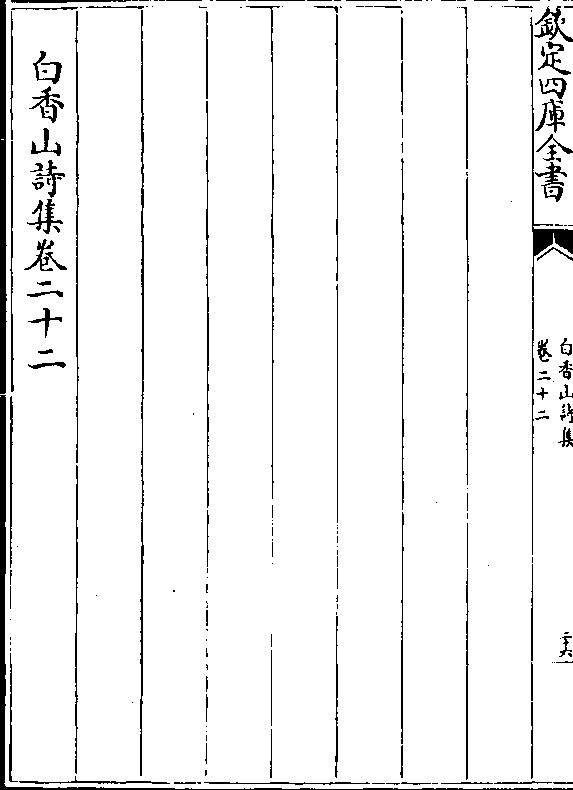 欽定四庫全書
白香山詩集
卷二十二
二十六
白香山詩集卷二十二